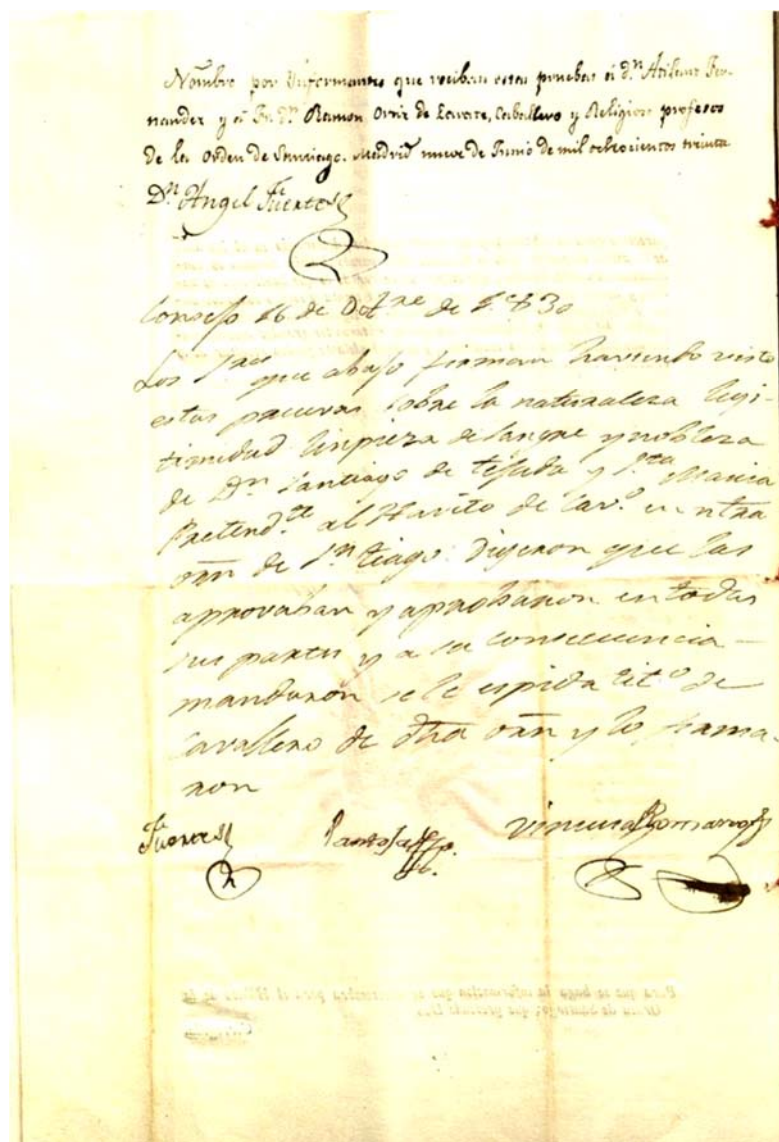 Nombro por Informantes que reciban estas pruebas á dn. Atilano Fer-
nandez y á Fr. dn. Ramon Ortiz de Zarate, Caballero y Religioso profesos
de la Orden de Santiago. Madrid nueve de Junio de mil ochocientos treinta
Dn. Angel Fuertes
Consejo 16 de Octre de 1830
Los Sres que abajo firman haviendo visto
estas pruevas sobre la naturaleza legi-
timidad limpieza de sangre y nobleza
de Dn Santiago de Tejada y Sta Maria
Pretendte al Havito de Cavo en ntra
orn de Sntiago: Digeron que las
aprovaban y aprobaron en todas
sus partes y a su consecuencia
mandaron se le espida tito de
Cavallero de dha orn y lo firma-
ron
Fuertes Pantoja Romano
Para que se haga la informacion que se acostumbra para el Hábito de la
Orden de Santiago, que pretende Don